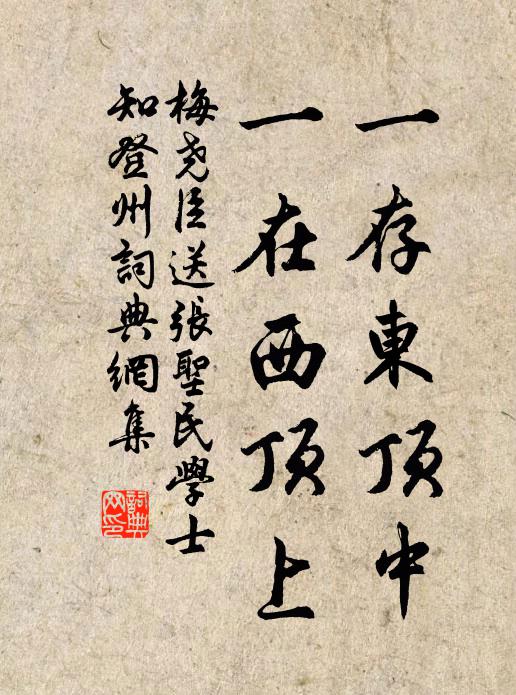 一存東頂中
一在西頂上
梅尧臣送張聖民學士
知登州詞典網集
詞典網印